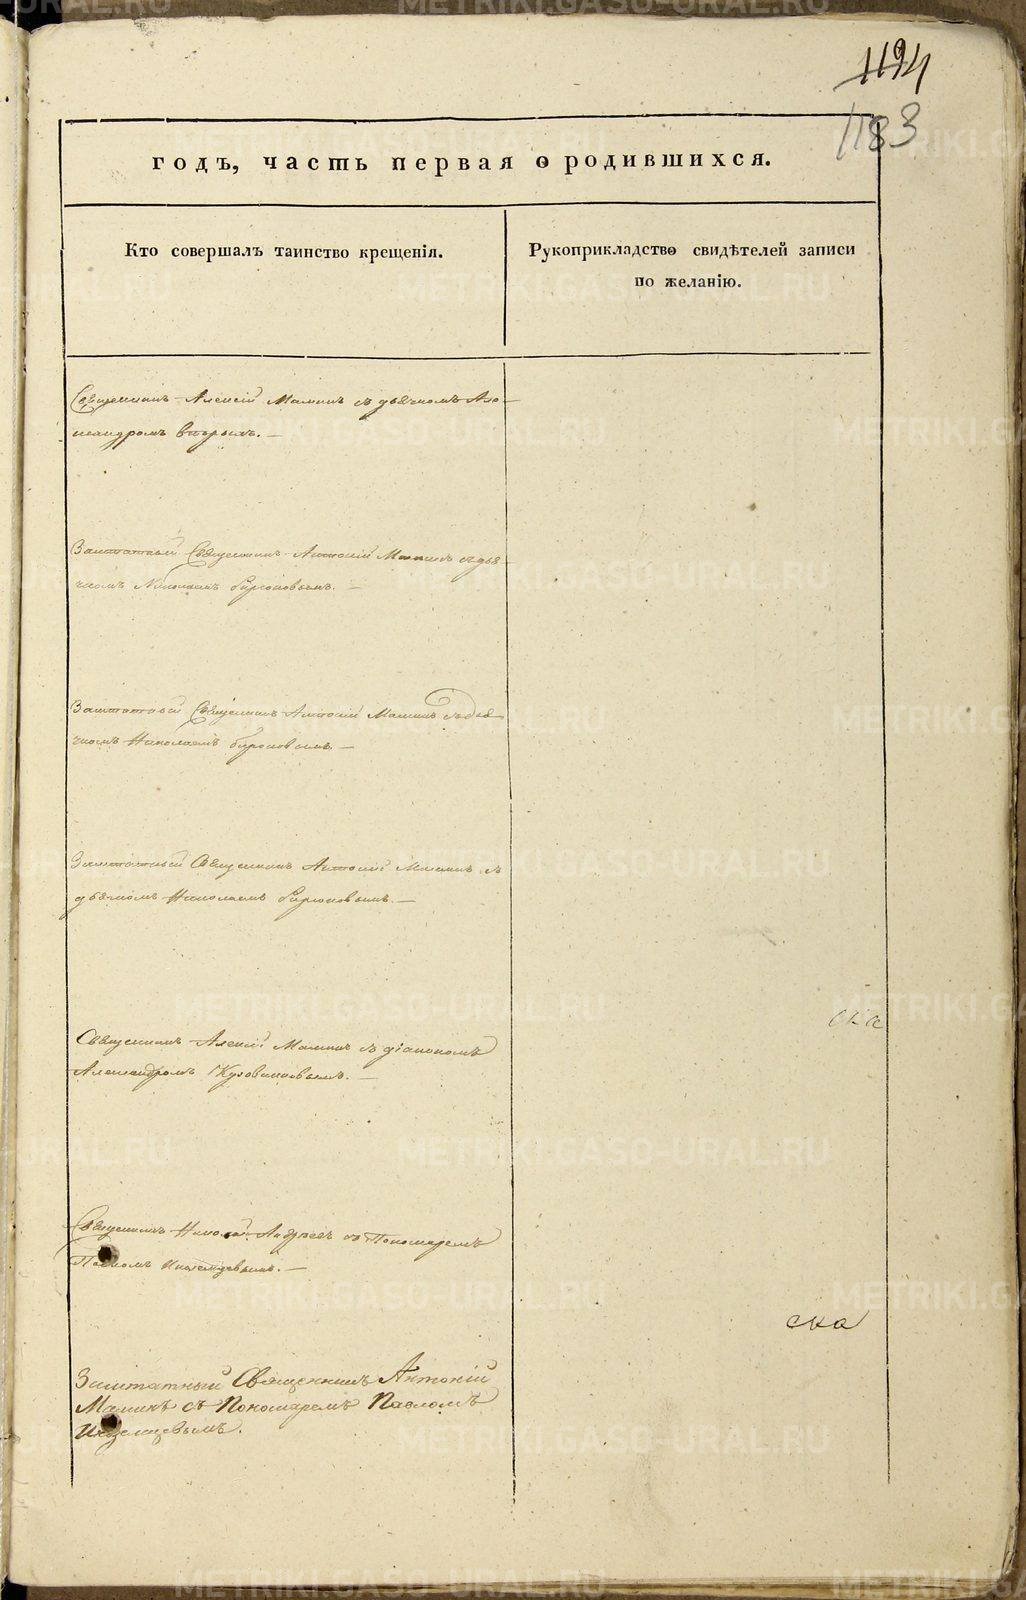 1194
1183
годъ, часть первая о родившихся.
Кто совершалъ таинство крещенія.
Рукоприкладство свидѣтелей записи
по желанію.
Священникъ Алексій Маминъ съ дьячкомъ Але-
ксандромъ
Заштатный Священникъ Антоній Маминъ съ дья-
чкомъ Николаемъ
Заштатный Священникъ Антоній Маминъ съ дья-
чкомъ Николаемъ
Заштатный Священникъ Антоній Маминъ съ
дьячкомъ Николаемъ
Священникъ Алексій Маминъ съ діакономъ
Александромъ
Священникъ Николай Андреевъ съ Пономаремъ
Павломъ
ска
Заштатный Священникъ Антоній
Маминъ съ Пономаремъ Павломъ
METRIKI.GASO-URAL.RU